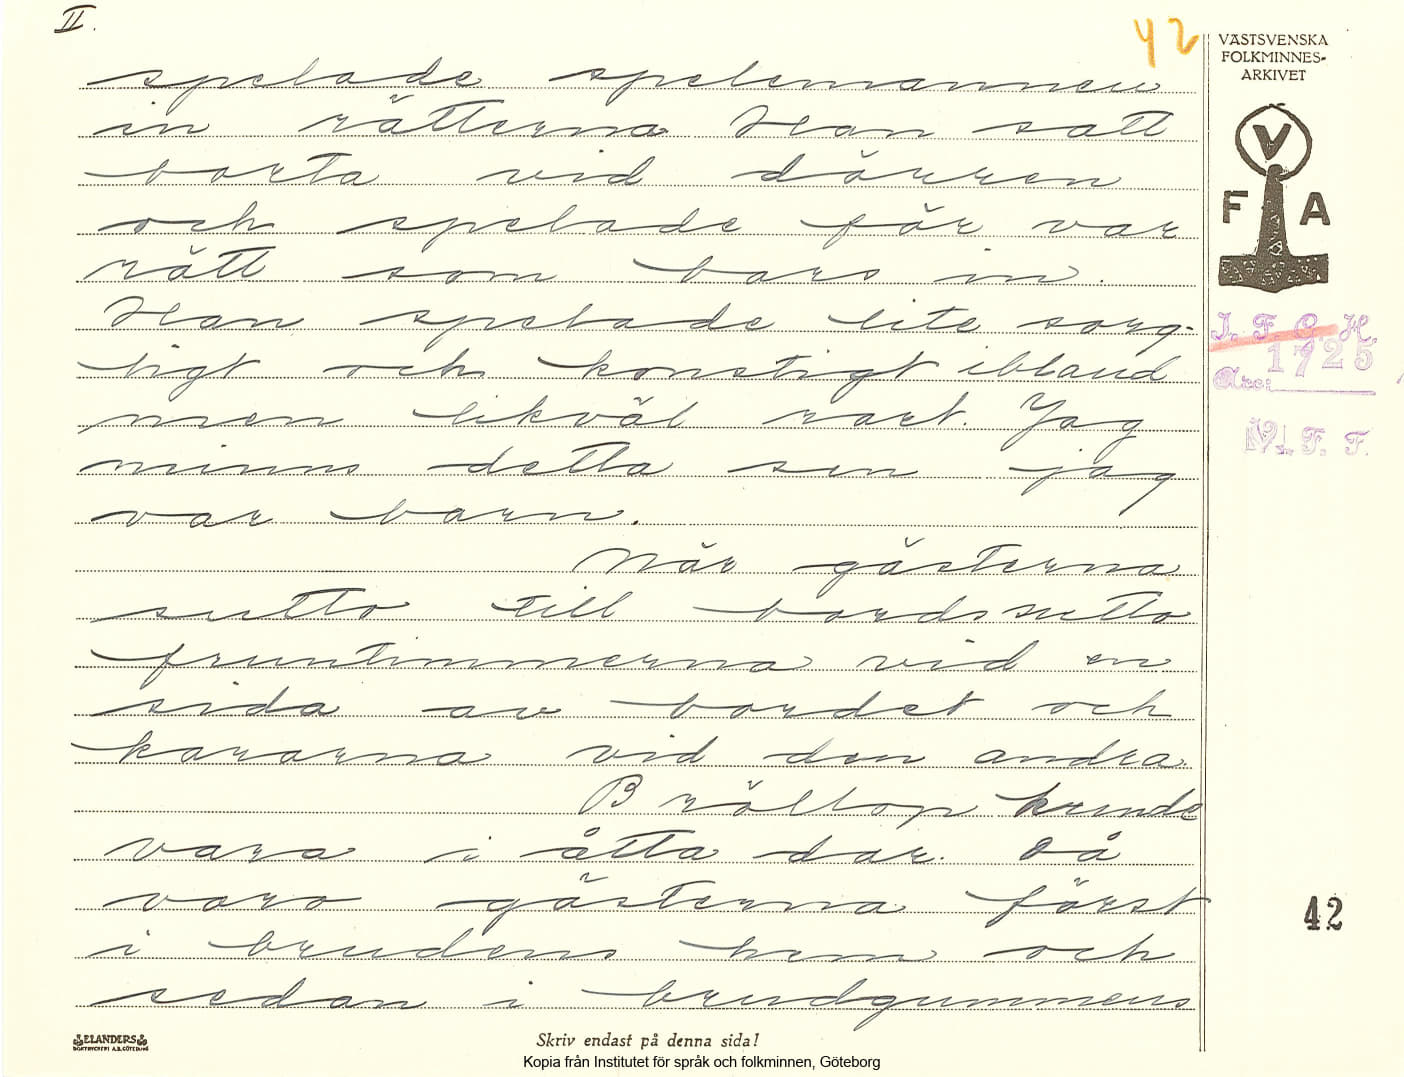 II.
42
VÄSTSVENSKA
FOLKMINNES-
ARKIVET
V
F A
spelade spelemannen
in rätterna Han satt
borta vid dörren
och spelade för var
rätt som bars in.
Han spelade lite sorg-
ligt och konstigt ibland
men likväl rart. Jag
minns detta sen jag
var barn.
När gästerna
sutto till bords sutto
fruntimmerna vid en
sida av bordet och
kararna vid den andra.
Bröllop kunde
vara i åtta dar. Då
voro gästerna först
i brudens hem och
sedan i brudgummens
I. F. G. H.
1725
Acc:
V. F. F.
42
ELANDERS
BOKTRYCKERI A.B. GÖTEBORG
Skriv endast på denna sida!
Kopia från Institutet för språk och folkminnen, Göteborg